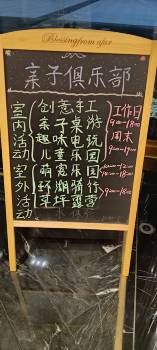 Blessing from afar
亲子俱乐部
室内活动
创意手工
亲子桌游
趣味电玩
儿童乐园
工作日
9:00-18:00
周末
9:00-19:00
室外活动
萌宠乐园
环湖骑行
草坪露营
14:00-18:00
9:00-18:00